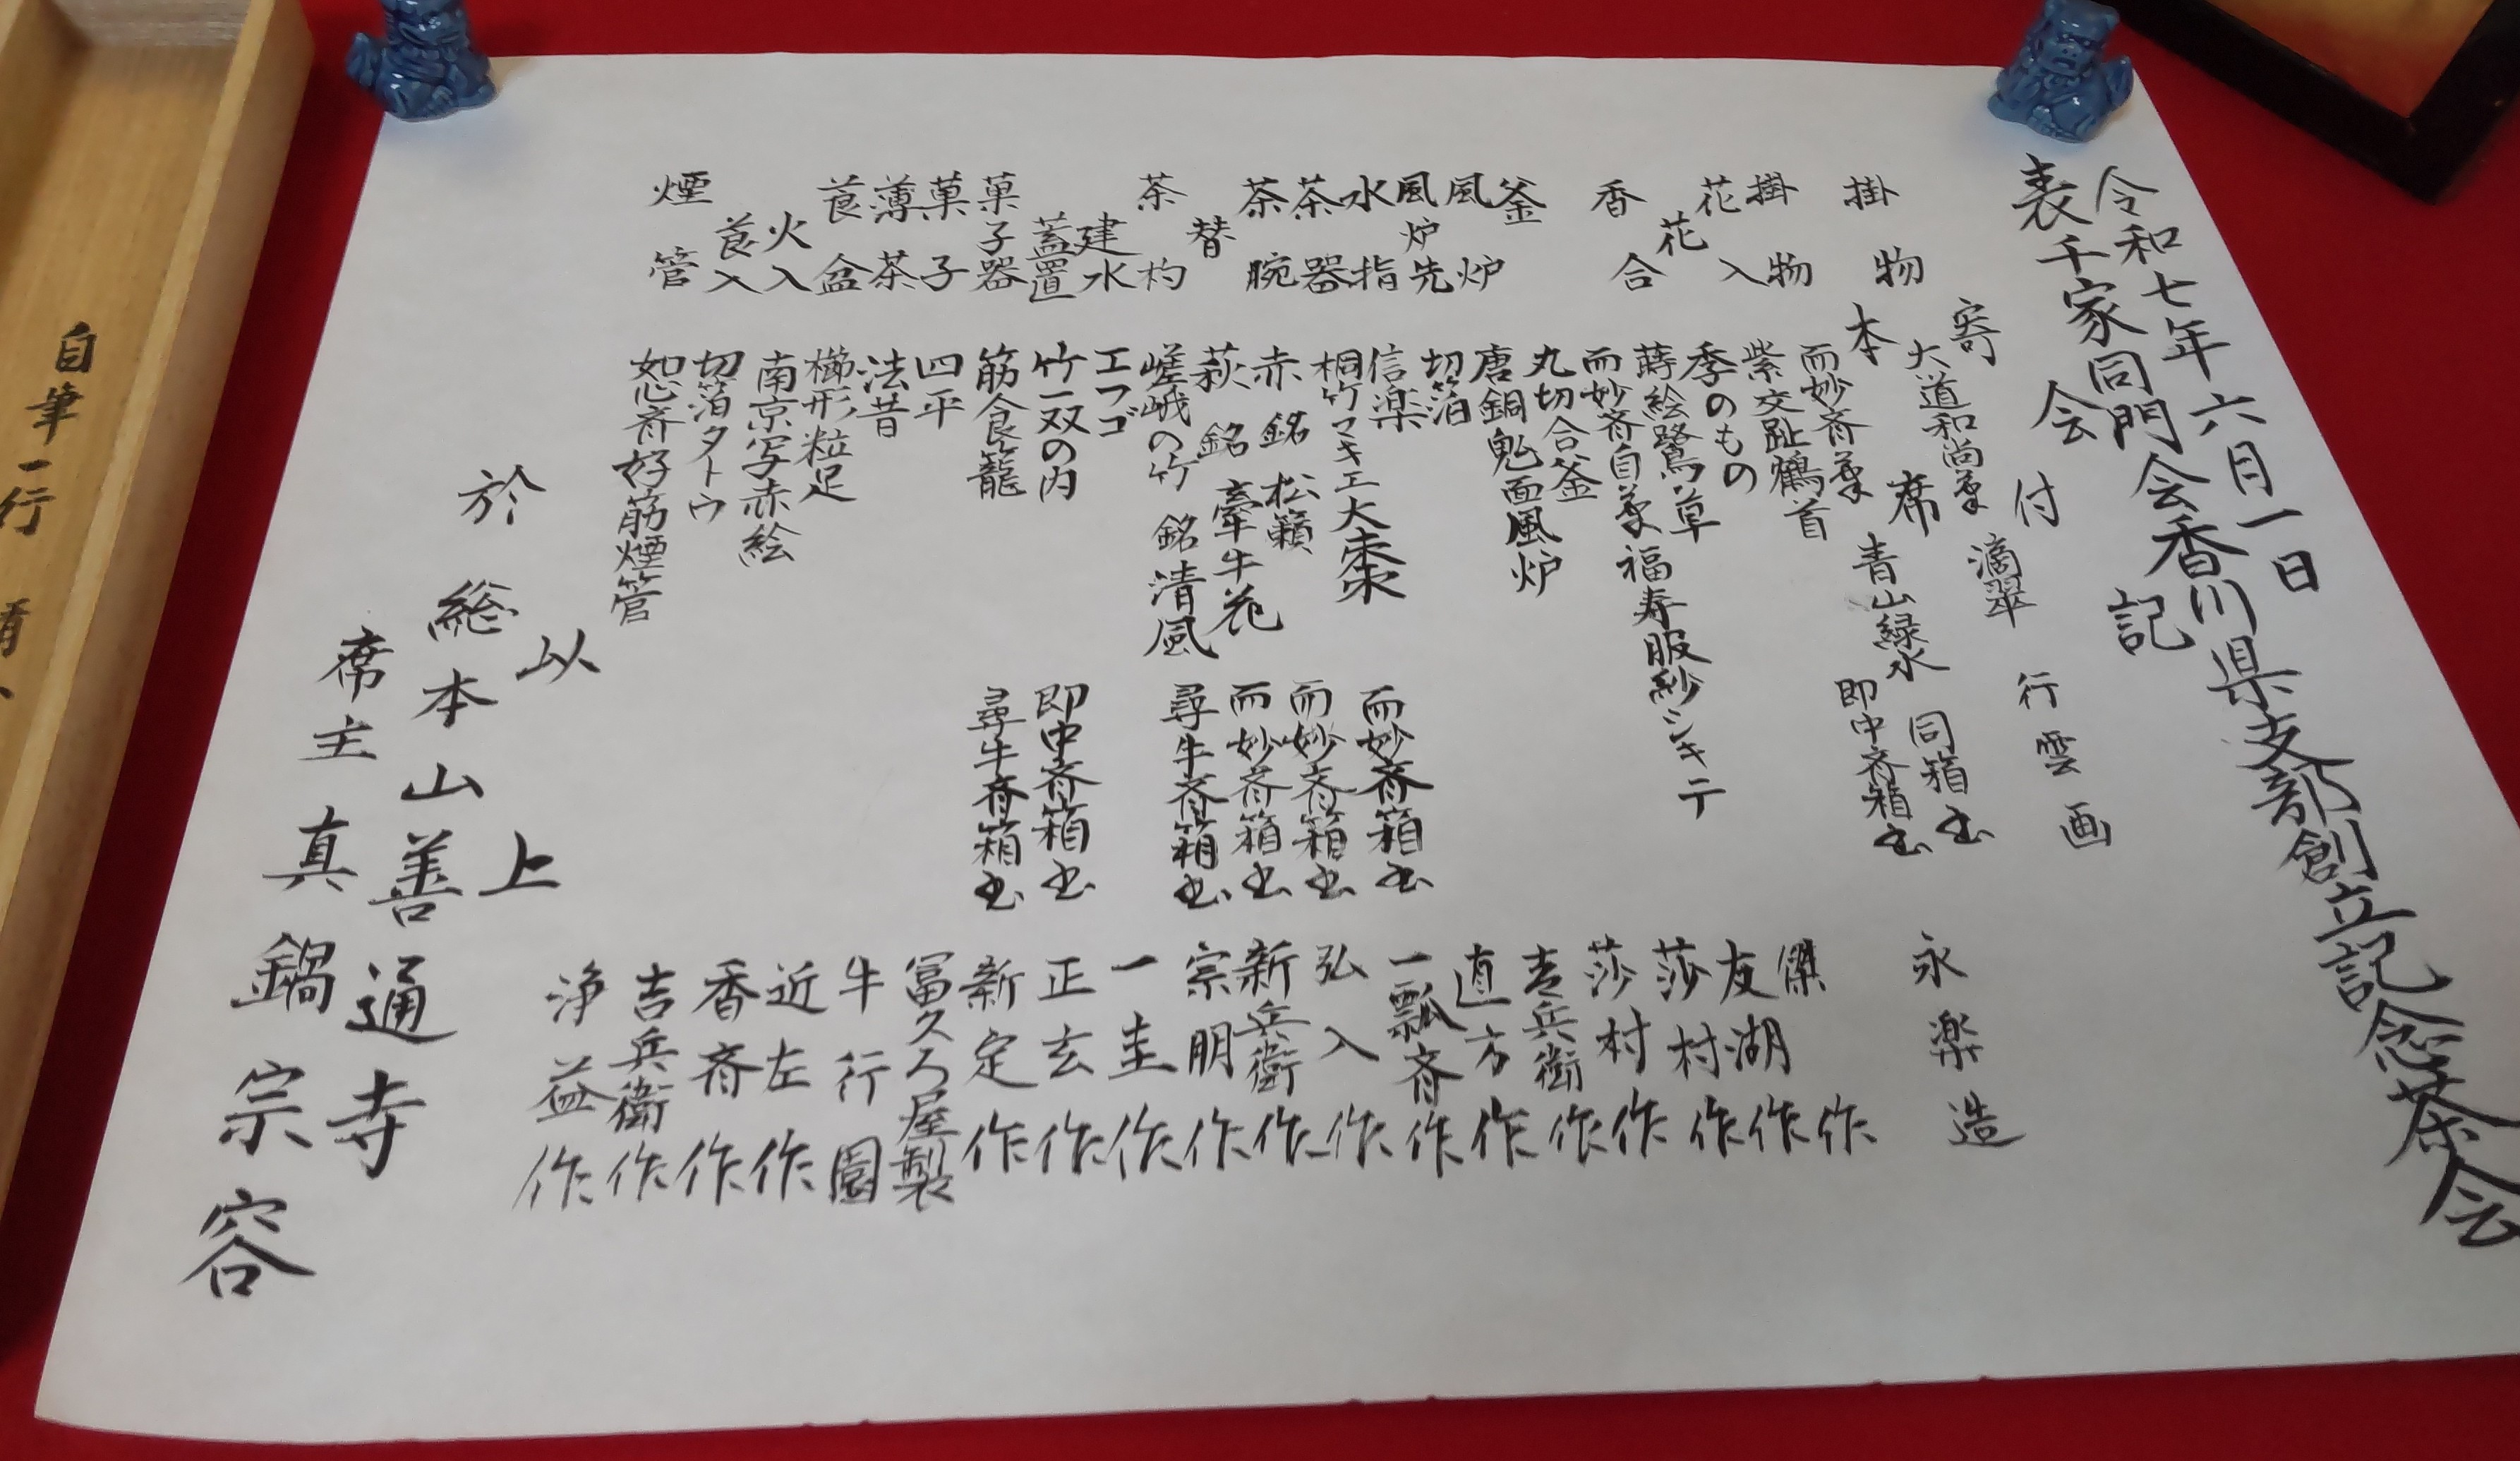 令和七年六月一日
表千家同門会香川県支部創立記念茶会
会記
寄付
掛物 大道和尚筆 滴翠 行雲画
本席
掛物 而妙斉筆 青山緑水 同箱書
花入 紫交趾鶴首 即中斉箱書 永楽造
花 季のもの
香合 蒔絵鷺草 作
而妙斉自筆福寿服紗シキテ 友湖作
釜 丸切合釜 莎村作
風炉 唐銅鬼面風炉 莎村作
風炉先 切箔 吉兵衛作
水指 信楽 直方作
茶器 桐竹マキエ大棗 而妙斉箱書 一瓢斉作
茶腕 赤 銘 松籟 而妙斉箱書 弘入作
替 萩 銘 牽牛花 而妙斉箱書 新兵衛作
茶杓 嵯峨の竹 銘 清風 尋牛斉箱書 宗朋作
建水 エフゴ 一圭作
蓋置 竹一双の内 即中斉箱書 正玄作
菓子器 筋食籠 尋牛斉箱書 新定作
菓子 四平 冨久ろ屋製
薄茶 法昔 牛行園
莨盆 櫛形粒足 近左作
火入 南京写赤絵 香斉作
莨入 切箔タトウ 吉兵衛作
煙管 如心斉好筋煙管 浄益作
以上
於 総本山善通寺
席主 真鍋宗容
自筆一行